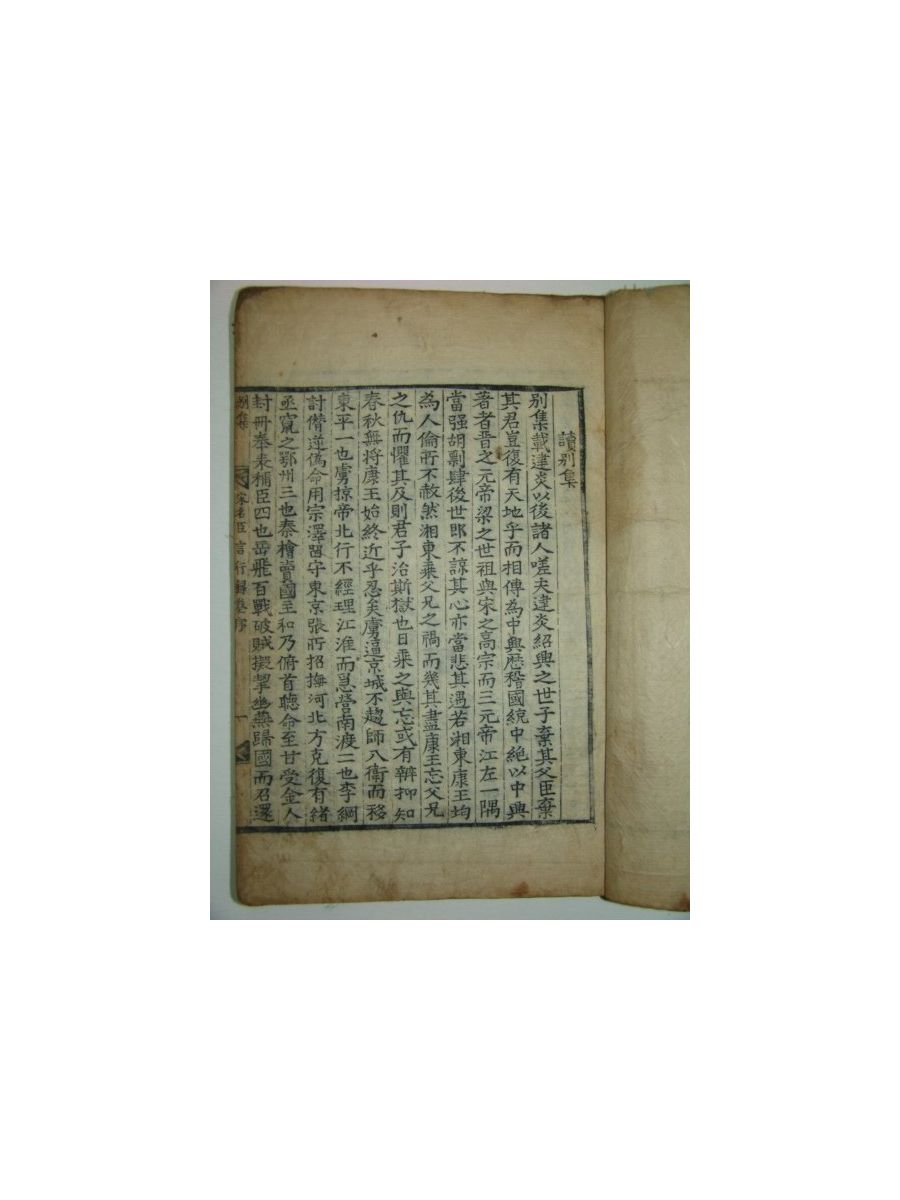 讀别集
别集載建炎以後諸人嗟夫建炎紹興之世子棄其父臣棄
其君豈復有天地乎而相傳為中興歷稽國統中絶以中興
著者晋之元帝梁之世祖與宋之高宗而三元帝江左一隅
當强胡剽肆後世郎不諒其心亦當悲其遇若湘東康王均
為人倫所不赦然湘東乘父兄之禍而幾其盡康王忘父兄
之仇而懼其反則君子治斯獄也曰乘之與忘或有辨抑知
春秋無将康王始終近乎忍矣虜逼京城不趨師入衛而移
東平一也虜掠帝北行不經理江淮而急營南渡二也李綱
討僣逆偽命用宗澤留守東京張所招撫河北方克復有緒
亟竄之鄂州三也秦檜賣國主和乃俯首聴命至甘受金人
封冊奉表稱臣四也岳飛百戰破賊擬挈幽燕歸國而召還
别集 宋名臣言行録叢序 一